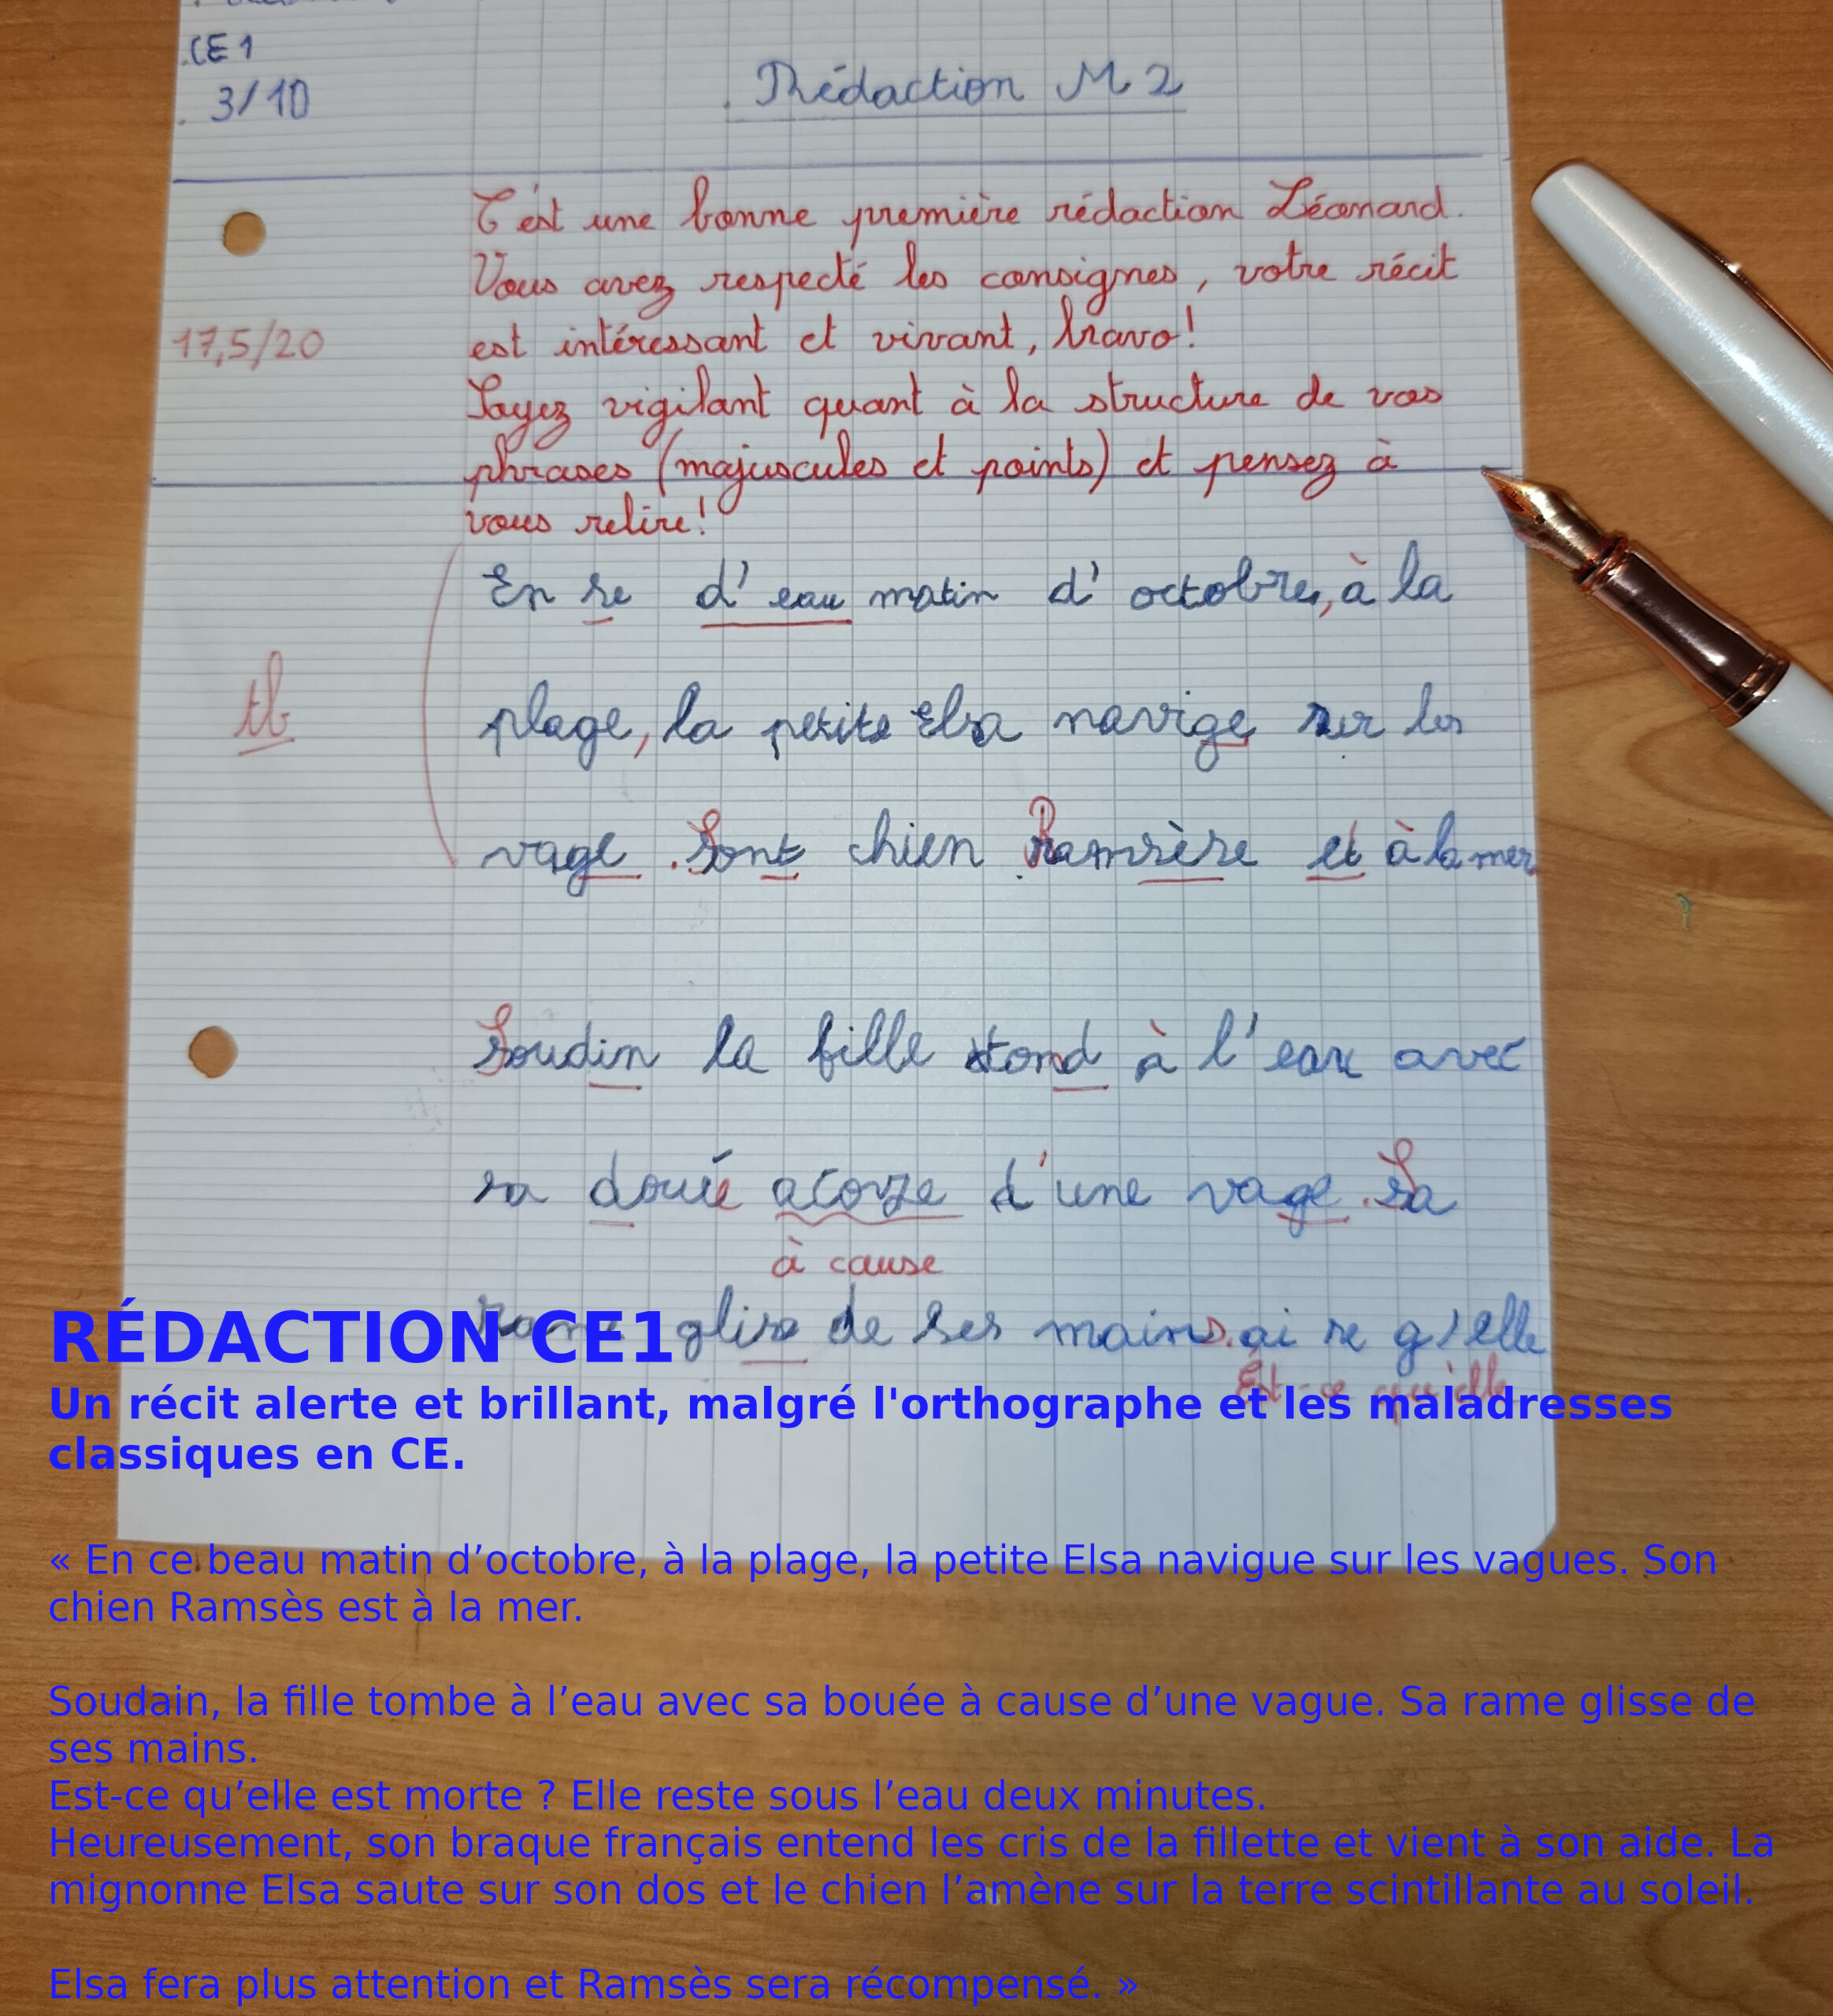 CE1
3/10
Rédaction M2
C'est une bonne première rédaction Léonard.
Vous avez respecté les consignes, votre récit
17,5/20
est intéressant et vivant, bravo!
Soyez vigilant quant à la structure de vos
phrases (majuscules et points) et pensez à
vous relire!
En se d'eau matin d'octobre, à la
tb
plage, la petite Elsa navige sur les
vage. Sont chien Ramsère et à la mer.
Soudin la fille tond à l'eau avec
sa douée acoze d'une vage. Sa
à cause
rame glise de ses mains. ai se g'elle
Est-ce qu'elle
RÉDACTION CE1
Un récit alerte et brillant, malgré l'orthographe et les maladresses
classiques en CE.
« En ce beau matin d’octobre, à la plage, la petite Elsa navigue sur les vagues. Son
chien Ramsès est à la mer.
Soudain, la fille tombe à l’eau avec sa bouée à cause d’une vague. Sa rame glisse de
ses mains.
Est-ce qu’elle est morte ? Elle reste sous l’eau deux minutes.
Heureusement, son braque français entend les cris de la fillette et vient à son aide. La
mignonne Elsa saute sur son dos et le chien l’amène sur la terre scintillante au soleil.
Elsa fera plus attention et Ramsès sera récompensé. »